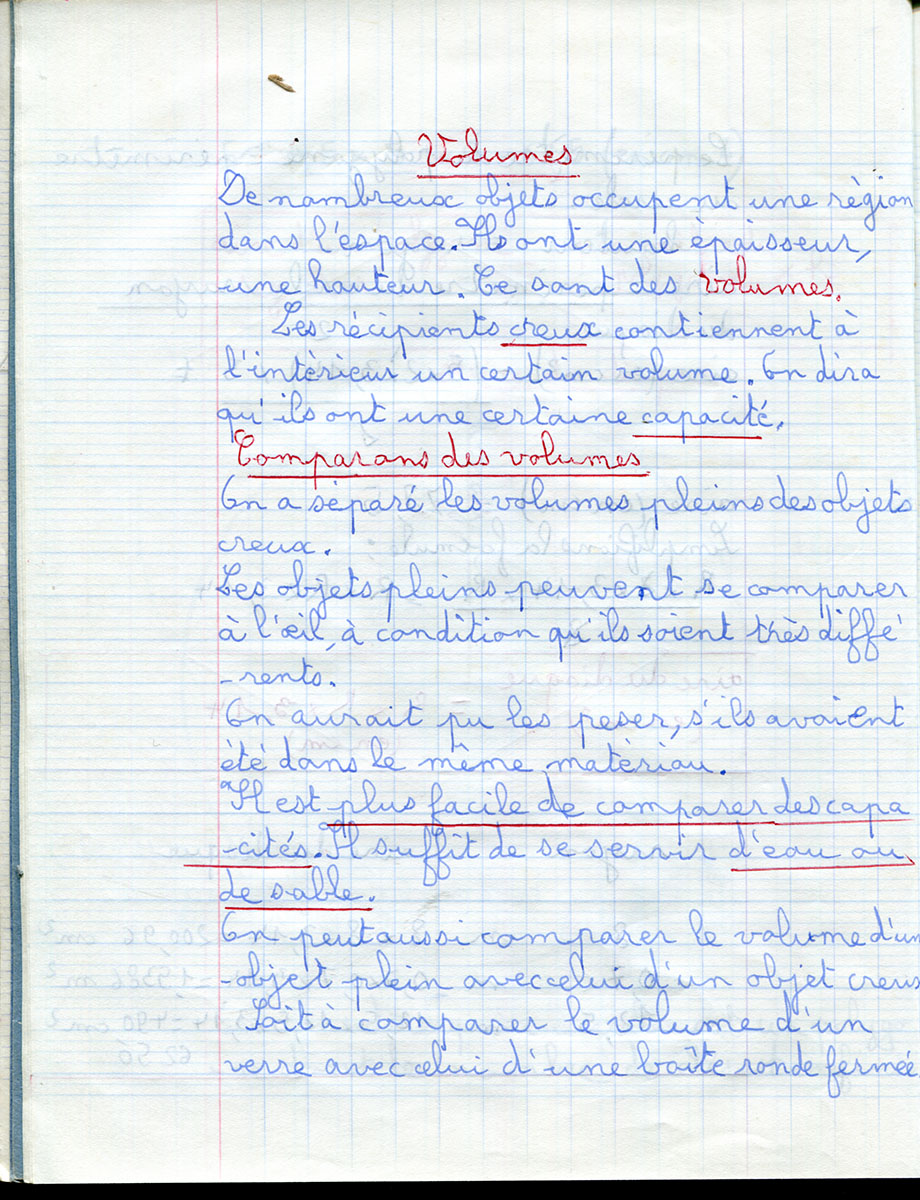 Volumes
De nombreux objets occupent une règion
dans l'espace. Ils ont une èpaisseur,
une hauteur. Ce sont des volumes.
Les récipients creux contiennent à
l'intèrieur un certain volume. On dira
qu'ils ont une certaine capacité.
Comparons des volumes
On a sèparé les volumes pleins des objets
creux.
Les objets pleins peuvent se comparer
à l'œil, à condition qu'ils soient très diffé
-rents.
On aurait pu les peser, s'ils avaient
été dans le même matèriau.
Il est plus facile de comparer des capa
-cités. Il suffit de se servir d'eau ou
de sable.
On peut aussi comparer le volume d'un
objet plein avec celui d'un objet creus
Soit à comparer le volume d'un
verre avec celui d'une boîte ronde fermée